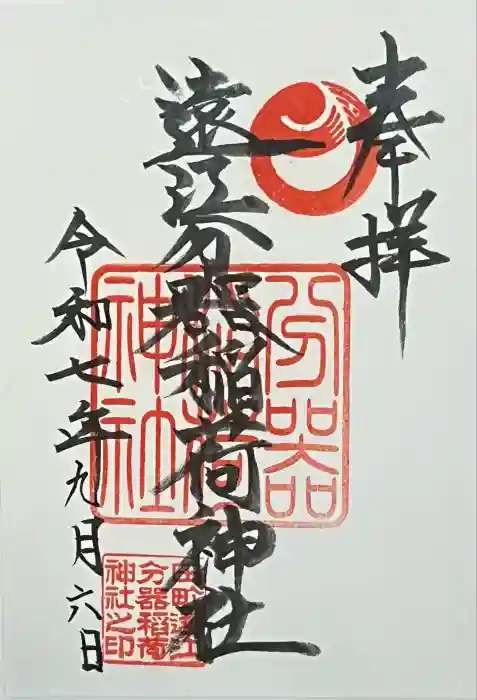 奉拝
遠江分器稲荷神社
令和七年九月六日
分器
稲荷
神社
田町遠江
分器稲荷
神社之印